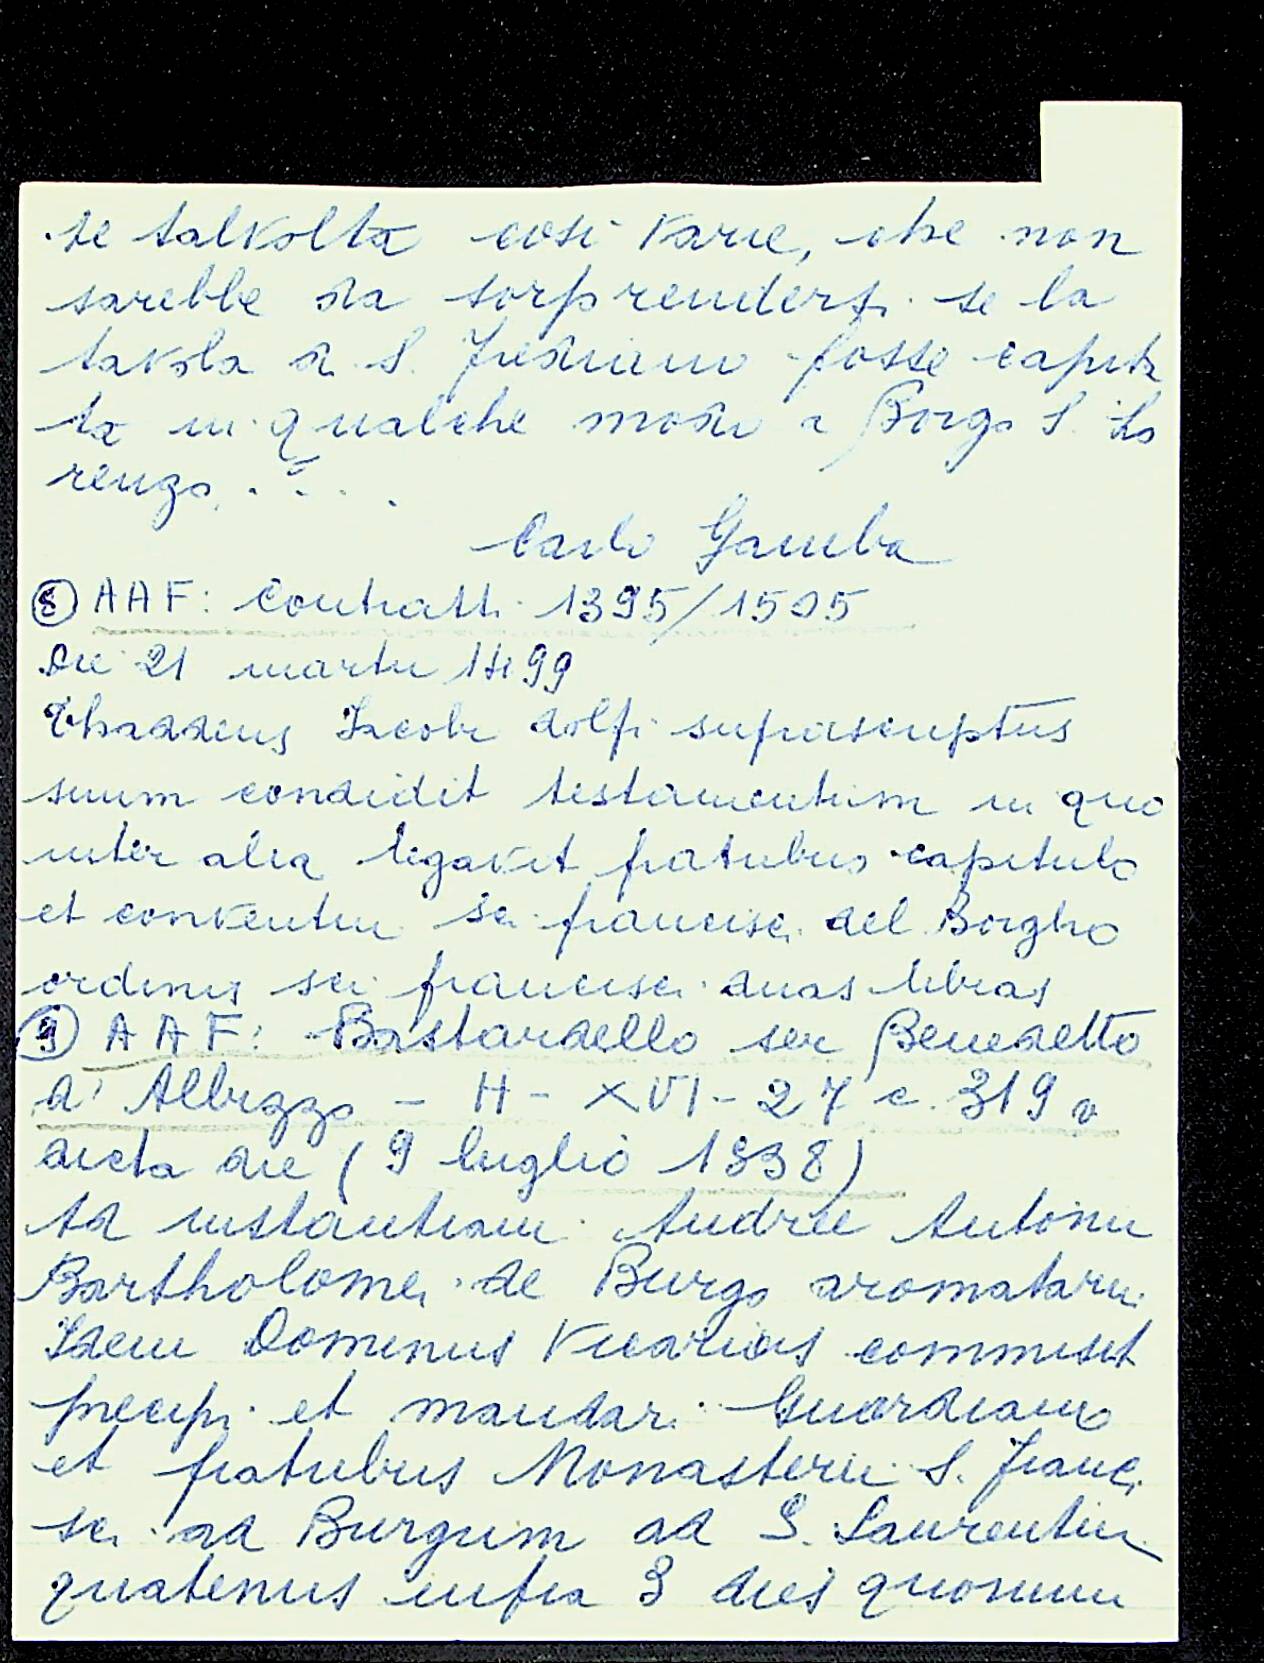 te talvolta così varie, che non
sarebbe da sorprendersi se la
tavola di S. Frediano fosse capita
ta in qualche modo a Borgo S. Lo
renzo. . . . .
Carlo Gamba
⑧ AAF: Contratti 1395/1505
Die 21 martii 1499
Thaddeus Jacobi dolfi suprascriptus
suum condidit testamentum in quo
inter alia legavit fratribus capitulo
et conventui sci francisci del Borgho
ordinis sci francisci duas libras
⑨ AAF: Bastardello ser Benedetto
d' Albizzo - H - XVI - 27 c. 319 v
dicta die (9 luglio 1838)
Ad instantiam Andree Antonii
Bartholomei de Burgo aromatarii
Idem Dominus Vicarius commisit
precipi et mandari Guardiano
et fratribus Monasterii S. Franci
sci ad Burgum ad S. Laurentii
quatenus infra 3 dies